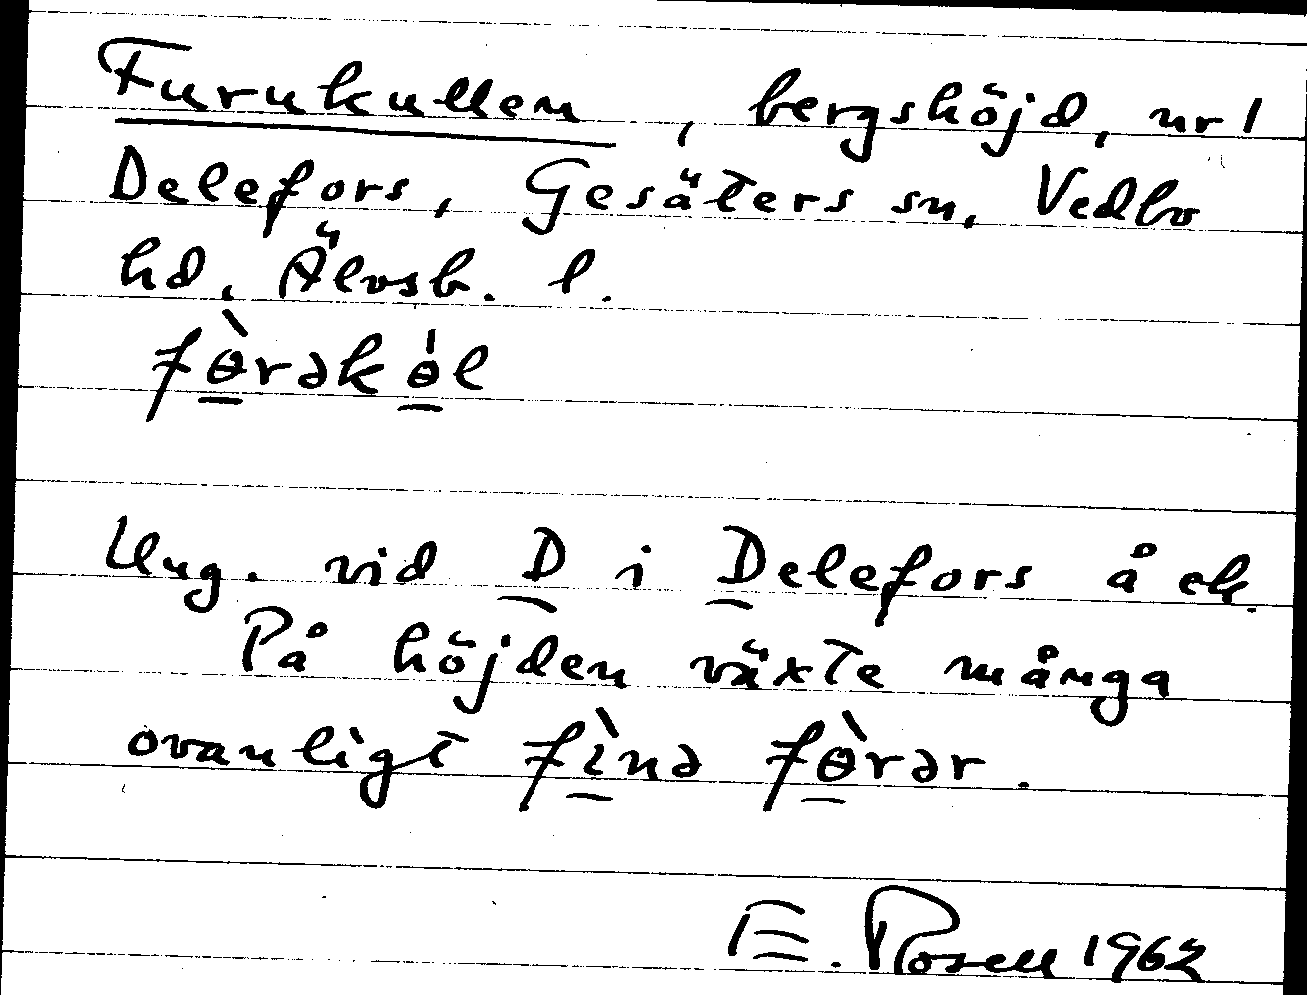 Furukullen, bergshöjd, nr 1
Delefors, Gesäters sn, Vedbo
hd, Älvsb. l.
fɵ̀rəkɵ́l
Ung. vid D i Delefors å ek.
På höjden växte många
ovanligt fìnə fɵ̀rər.
E. Rosell 1962